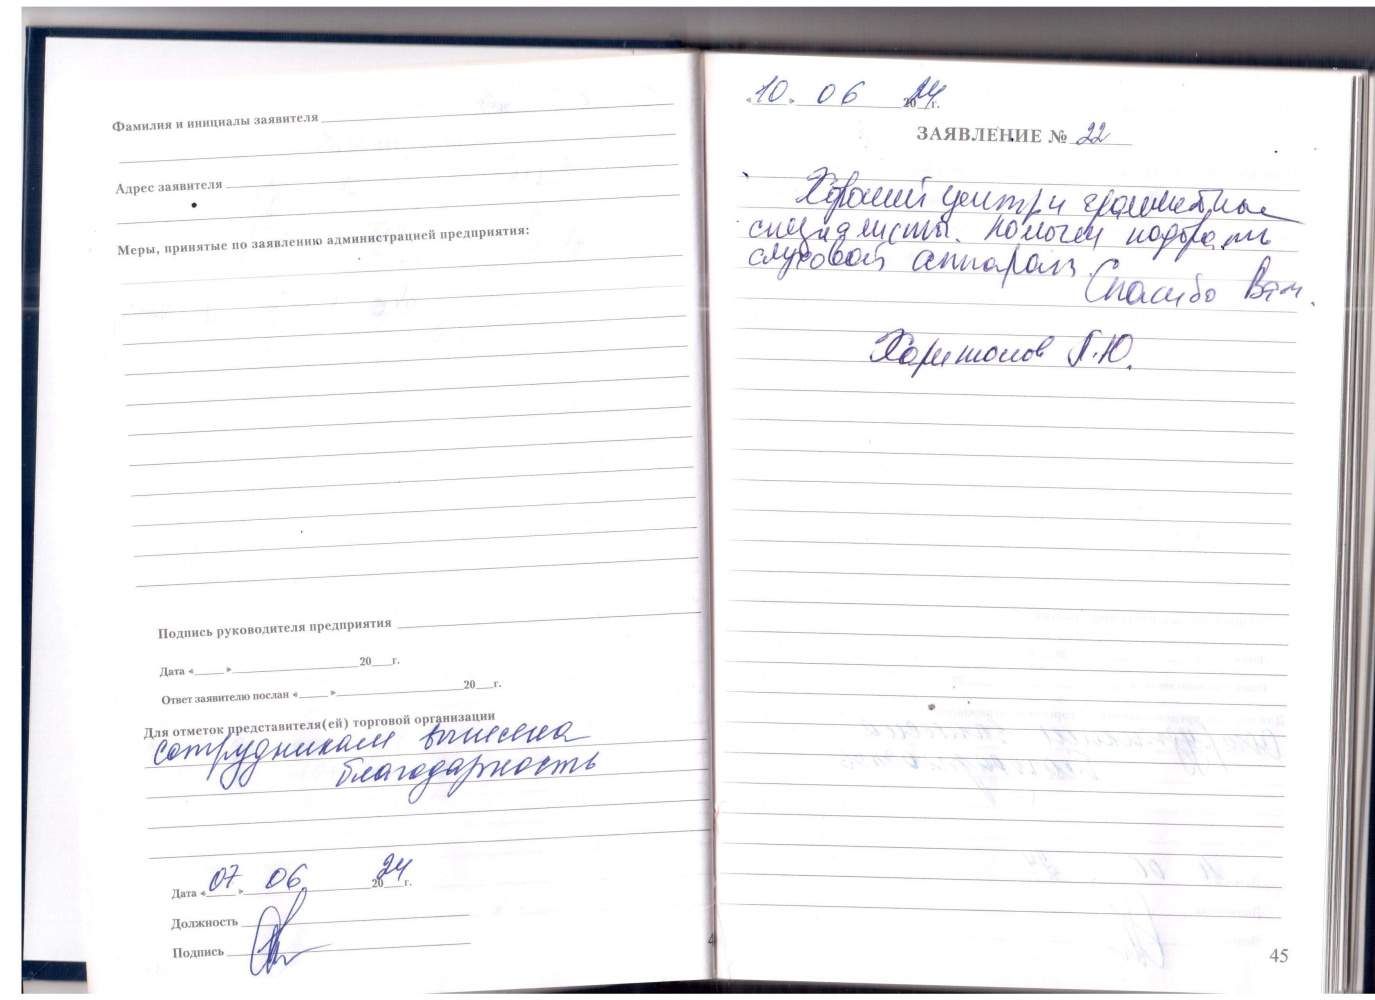 Фамилия и инициалы заявителя
Адрес заявителя
Меры, принятые по заявлению администрацией предприятия:
Подпись руководителя предприятия
Дата « » 20 г.
Ответ заявителю послан « » 20 г.
Для отметок представителя(ей) торговой организации
сотрудникам вынесена
благодарность
Дата « 07 » 06 2024 г.
Должность
Подпись
« 10 » 06 2024 г.
ЗАЯВЛЕНИЕ № 22
Хороший центр и грамотные
специалисты. Помогли подобрать
слуховой аппарат.
Спасибо Вам.
Харитонов П.Ю.
45